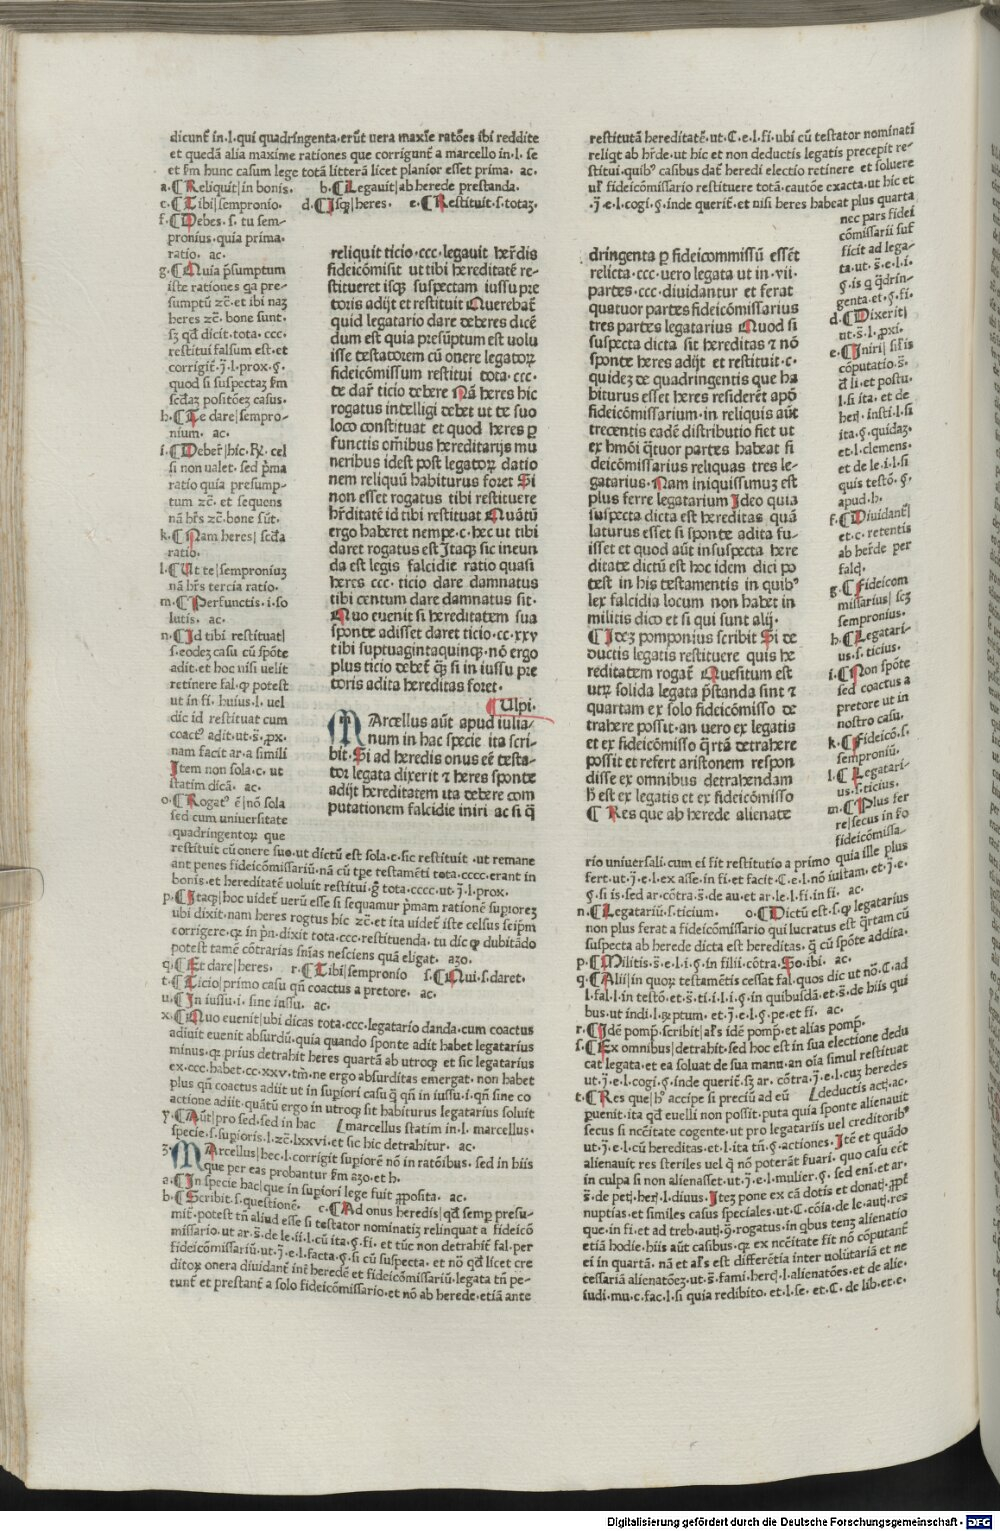 dicunt̃ in·l·qui quadringenta·erũt uera maxie ratões ibi reddite
et quedã alia maxime rationes que corrigunt̃ a marcello in·l·se
et ẜm hunc casum lege totã litterã licet planior esset prima· ac·
a·⸿Reliquit|in bonis· b·⸿Legauit|ab herede prestanda·
c·⸿Tibi|sempronio· d·⸿Isqꝫ|heres· e·⸿Restituit·s·totaꝫ·
f·⸿Debes·s·tu sem-
pronius·quia prima·
ratio· ac·
g·⸿Quia p̃sumptum
iste rationes qa pre-
sumptũ ꝛc̃·et ibi naꝫ
heres ꝛc̃·bone sunt·
sꝫ qđ dicit·tota·ccc·
restitui falsum est·et
corrigit̃·j̃·l·prox·§·
quod si suspectaꝫ ẜm
sed̃aꝫ positõeꝫ casus·
h·⸿Te dare|sempro-
nium· ac·
i·⸿Deber̃|hic·R̃·cel
si non ualet·sed p̃ma
ratio quia presump-
tum ꝛc̃·et sequens
nã hr̃s ꝛc̃·bone sũt·
k·⸿Nam heres|sed̃a
ratio·
l·⸿Ut te|semproniuꝫ
nã hr̃s tercia ratio·
m·⸿Perfunctis·i·so
lutis· ac·
n·⸿Id tibi restituat|
s·eodeꝫ casu cũ spõte
adit·et hoc nisi uelit
retinere fal·ꝙ potest
ut in fi·huius·l·uel
dic id restituat cum
coactꝰ adit·ut·s̃·ꝓx·
nam facit ar·a simili
Item non sola·c·ut
statim dicã· ac·
o·⸿Rogatꝰ ẽ|nõ sola
sed cum uniuersitate
quadringentoꝝ que
restituit cũ onere suo·ut dictũ est sola·c·sic restituit·ut remane
ant penes fideicõmissariũ·nã cũ tp̃e testamẽti tota·cccc·erant in
bonis·et hereditatẽ uoluit restitui·g̃ tota·cccc·ut·j̃·l·prox·
p·⸿Itaqꝫ|hoc uidet̃ uerũ esse si sequamur p̃mam rationẽ supioreꝫ
ubi dixit·nam heres rogtus hic ꝛc̃·et ita uidet̃ iste celsus seipm̃
corrigere·qꝛ in p̃n·dixit tota·ccc·restituenda·tu dic ꝙ dubitãdo
potest tamẽ cõtrarias sñias nesciens quã eligat· azo·
q·⸿Et dare|heres· r·⸿Tibi|sempronio s·⸿Qui·s·daret·
t·⸿Ticio|primo casu qñ coactus a pretore· ac·
u·⸿In iussu·i·sine iussu· ac·
x·⸿Quo euenit|ubi dicas tota·ccc·legatario danda·cum coactus
adiuit euenit absurdũ·quia quando sponte adit habet legatarius
minus·qꝛ prius detrahit heres quartã ab utroqꝫ et sic legatarius
ex·ccc·habet·cc·xxv·tm̃·ne ergo absurditas emergat·non habet
plus qñ coactus adiit ut in supiori casu q̃ qñ in iussu·i·qñ sine co
actione adiit·quãtũ ergo in utroqꝫ sit habiturus legatarius soluit
y·⸿Aũt|pro sed·sed in hac marcellus statim in·l·marcellus·
specie·s·supioris·l·ꝛc̃·lxxvi·et sic hic detrahitur· ac·
ʒ·Marcellus|hec·l·corrigit supiorẽ nõ in ratõibus·sed in hiis
que per eas probantur ẜm azo·et h·
a·⸿In specie hac|que in supiori lege fuit ꝓposita· ac·
b·⸿Scribit·s·questionẽ· c·⸿Ad onus heredis|qđ semp presu-
mit̃·potest tñ aliud esse si testator nominatiꝫ relinquat a fideicõ
missario·ut ar·s̃·de le·ii·l·cũ ita·§·fi·et tũc non detrahit̃ fal·per
fideicõmissariũ·ut·j̃·e·l·facta·§·si cũ suspecta·et nõ qđ licet cre
ditoꝝ onera diuidant̃ int̃ heredẽ et fideicõmissariũ·legata tñ pe-
tunt̃ et prestant̃ a solo fideicõmissario·et nõ ab herede·etiã ante
reliquit ticio·ccc·legauit her̃dis
fideicõmisit ut tibi hereditatẽ re-
stitueret isqꝫ suspectam iussu pre
toris adijt et restituit Querebat̃
quid legatario dare deberes dicẽ
dum est quia presũptum est uolu
isse testatorem cũ onere legatoꝝ
fideicõmissum restitui tota·ccc·
te dar̃ ticio debere Nã heres hic
rogatus intelligi debet ut te suo
loco constituat et quod heres ꝑ
functis om̃ibus hereditarijs mu
neribus idest post legatoꝝ datio
nem reliquũ habiturus foret Si
non esset rogatus tibi restituere
hr̃ditatẽ id tibi restituat Quãtũ
ergo haberet nempe·c·hec ut tibi
daret rogatus est Itaqꝫ sic ineun
da est legis falcidie ratio quasi
heres ccc·ticio dare damnatus
tibi centum dare damnatus sit·
Quo euenit si hereditatem sua
sponte adisset daret ticio·cc·xxv
tibi suptuagintaquincqꝫ·nõ ergo
plus ticio debet̃ q̃ꝫ si in iussu pre
toris adita hereditas foret·
⸿Ulpi·
MArcellus aũt apud iulia-
num in hac specie ita scri-
bit·Si ad heredis onus eẽ testa-
tor legata dixerit ⁊ heres sponte
adijt hereditatem ita debere com
putationem falcidie iniri ac si q̃
restitutã hereditatẽ·ut·C·e·l·fi·ubi cũ testator nominati
reliqt ab hr̃de·ut hic et non deductis legatis precepit re-
stitui·quibꝰ casibus dat̃ heredi electio retinere et soluere
ul̃ fideicõmissario restituere totã·cautõe exacta·ut hic et
·j̃·e·l·cogi·§·inde querit̃·et nisi heres habeat plus quarta
nec pars fidei
cõmissarii suf
ficit ad lega-
ta·ut·s̃·e·l·i·
§·is q q̃drin-
genta·et·§·fi·
d·⸿Dixerit|
ut·s̃·l·ꝓxi·
e·⸿Iniri|sil̃is
cõputatio·s̃·
đ li·et postu·
l·si ita·et de
her̃·insti·l·si
ita·§·quidaꝫ·
et·l·clemens·
et de le·i·l·si
quis testõ·§·
apud·h·
f·⸿Diuidant̃|
et·c·retentis
ab her̃de per
fald·
g·⸿Fideicom
missarius|scꝫ
sempronius·
h·⸿Legatari-
us·s·ticius·
i·⸿Non spõte
sed coactus a
pretore ut in
nostro casu·
k·⸿Fideicõ·s·
semproniũ·
l·⸿Legatari-
us·s·ticius·
m·⸿Plus fer
re|secus in ẜo
fideicõmissa-
rio uniuersali·cum ei fit restitutio a primo quia ille plus
fert·ut·j̃·e·l·ex asse·in fi·et facit·C·e·l·nõ iustam·et·j̃·e·
§·si is·sed ar·cõtra·s̃·de au·et ar·le·l·fi·in fi· ac·
n·⸿Legatariũ·s·ticium· o·⸿Dictũ est·s·ꝙ legatarius
non plus ferat a fideicõmissario qui lucratus est q̃rtam cũ
suspecta ab herede dicta est hereditas·q̃ cũ spõte addita·
p·⸿Militis·s̃·e·l·i·§·in filii·cõtra·So·ibi· ac·
q·⸿Alii|in quoꝝ testamẽtis cessat fal·quos dic ut nõ·C·ad
l·fal·l·in testõ·et·s̃·ti·i·l·i·§·in quibusdã·et·s̃·de hiis qui
bus·ut indi·l·ꝶptum·et·j̃·e·l·§·pe·et fi· ac·
r·⸿Idẽ pomp̃·scribit|al̃s idẽ pomp̃·et alias pomp̃·
s·⸿Ex omnibus|detrahit·sed hoc est in sua electione dedu
cat̃ legata·et ea soluat de sua manu·an oĩa simul restituat
ut·j̃·e·l·cogi·§·inde querit̃·sꝫ ar·cõtra·j̃·e·l·cuꝫ heredes
t·⸿Res que|hꝰ accipe si preciũ ad eũ deductis act̃·ac·
ꝓuenit·ita qđ euelli non possit·puta quia sponte alienauit
secus si nc̃eitate cogente·ut pro legatariis uel creditoribꝰ
ut·j̃·e·l·cũ hereditas·et·l·ita tñ·§·actiones·Itẽ et quãdo
alienauit res steriles uel q̃ nõ poterãt ẜuari·quo casu eẽt
in culpa si non alienasset·ut·j̃·e·l·mulier·§·sed eni·et ar·
s̃·de pet̃·her̃·l·diuus·Iteꝫ pone ex cã dotis et donat̃·ꝓpt̃
nuptias·et similes casus speciales·ut·C·cõia·de le·aut̃·res
que·in fi·et ad treb·aut̃·§·rogatus·in qbus tenꝫ alienatio
etiã hodie·hiis aũt casibus·qꝛ ex nc̃eitate fit nõ cõputant̃
ei in quartã·nã et al̃s est differẽtia inter uolũtariã et ne
cessariã alienatõeꝫ·ut·s̃·fami·herc̃·l·alienatões·et de alie·
iudi·mu·c·fac·l·si quia redibito·et·l·se·et·C·de lib·et·c·
dringenta ꝑ fideicommissũ essẽt
relicta·ccc·uero legata ut in·vii·
partes·ccc·diuidantur et ferat
quatuor partes fideicõmissarius
tres partes legatarius Quod si
suspecta dicta sit hereditas ⁊ nõ
sponte heres adijt et restituit·c·
quideꝫ de quadringentis que ha
biturus esset heres resideret apđ
fideicõmissarium·in reliquis aũt
trecentis eadẽ distributio fiet ut
ex hm̃õi q̃tuor partes habeat fi
deicõmissarius reliquas tres le-
gatarius·Nam iniquissimuꝫ est
plus ferre legatarium Ideo quia
suspecta dicta est hereditas quã
laturus esset si sponte adita fu-
isset et quod aũt insuspecta here
ditate dictũ est hoc idem dici po
test in his testamentis in quibꝰ
lex falcidia locum non habet in
militis dico et si qui sunt alij·
⸿Ideꝫ pomponius scribit Si de
ductis legatis restituere quis he
reditatem rogat̃ Quesitum est
utꝝ solida legata p̃standa sint ⁊
quartam ex solo fideicõmisso de
trahere possit·an uero ex legatis
et ex fideicõmisso q̃rtã detrahere
possit et refert aristonem respon
disse ex omnibus detrahendam
h̃ est ex legatis et ex fideicõmisso
⸿Res que ab herede alienate
Digitalisierung gefördert durch die Deutsche Forschungsgemeinschaft - DFG